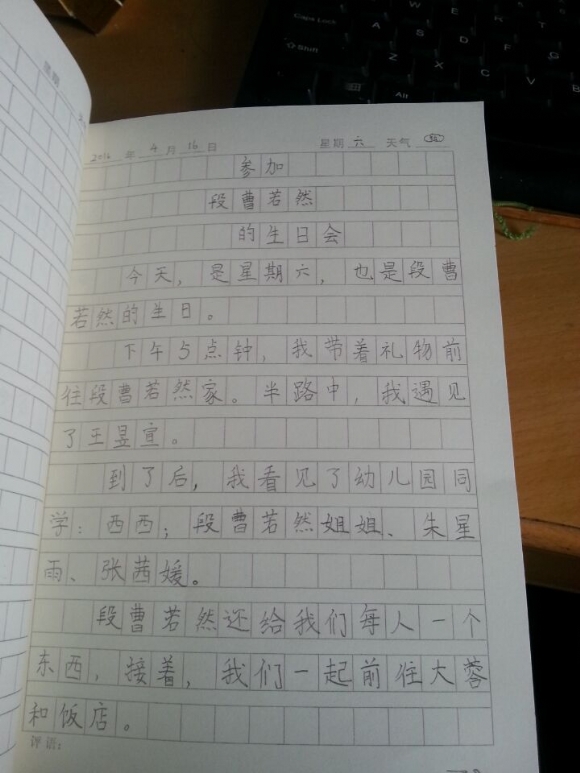 2016 年 4 月 16 日 星期 六 天气
参加
段曹若然
的生日会
今天，是星期六，也是段曹
若然的生日。
下午5点钟，我带着礼物前
往段曹若然家。半路中，我遇见
了王昱宣。
到了后，我看见了幼儿园同
学：西西；段曹若然姐姐、朱星
雨、张茜媛。
段曹若然还给我们每人一个
东西，接着，我们一起前往大蓉
和饭店。
评语：
Caps Lock
Shift
A
Z